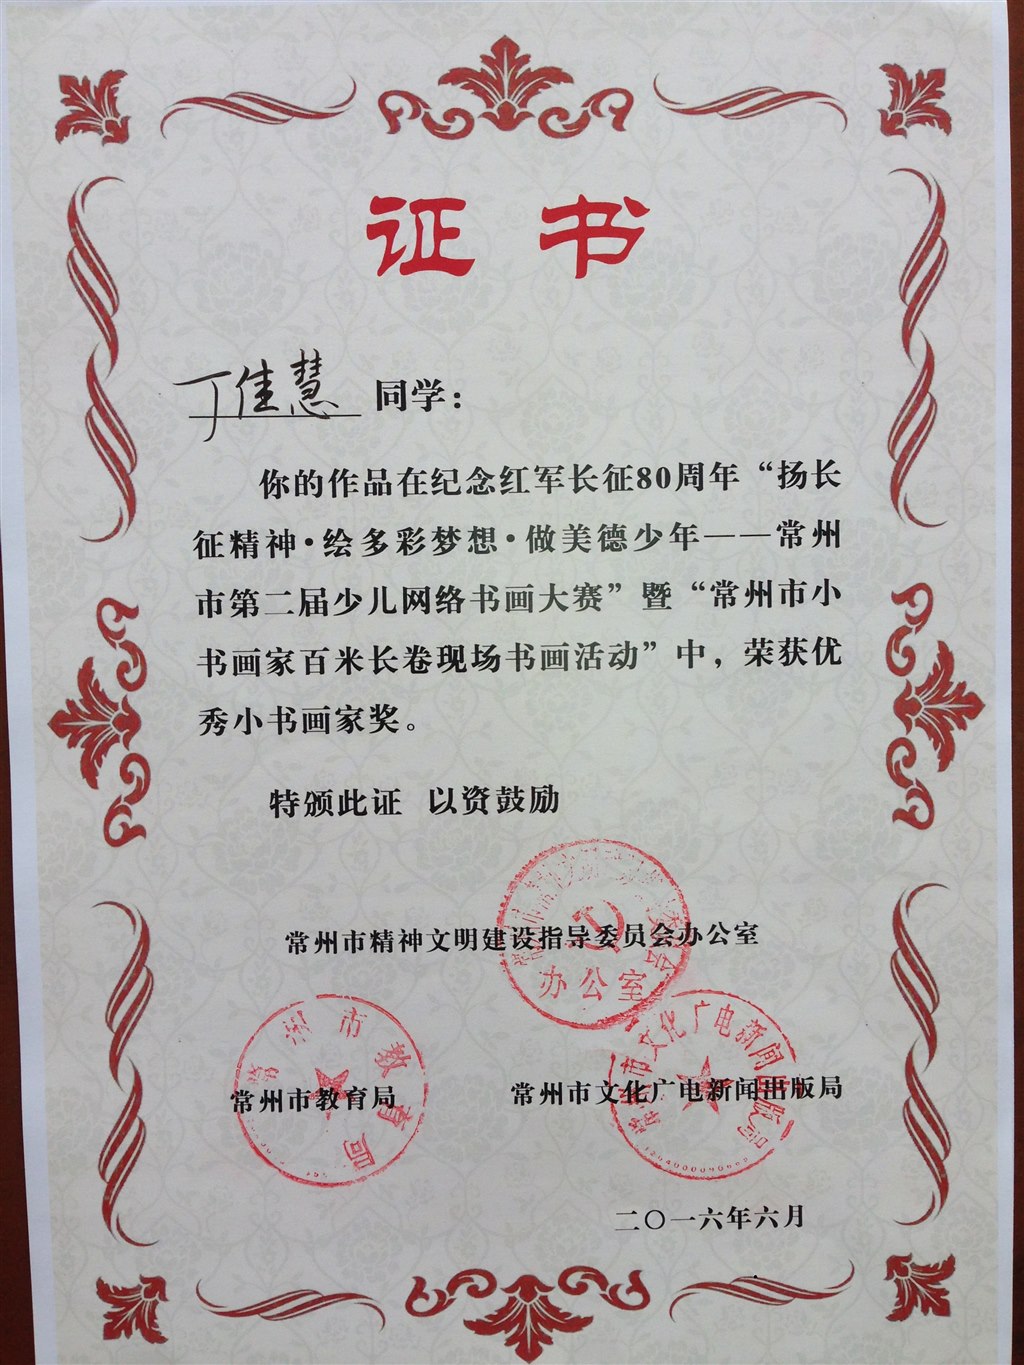 证书
丁佳慧 同学：
你的作品在纪念红军长征80周年“扬长
征精神·绘多彩梦想·做美德少年——常州
市第二届少儿网络书画大赛”暨“常州市小
书画家百米长卷现场书画活动”中，荣获优
秀小书画家奖。
特颁此证 以资鼓励
常州市精神文明建设指导委员会办公室
办公室
常州市教育局
常州市教育局
常州市文化广电新闻出版局
常州市文化广电新闻出版局
二〇一六年六月